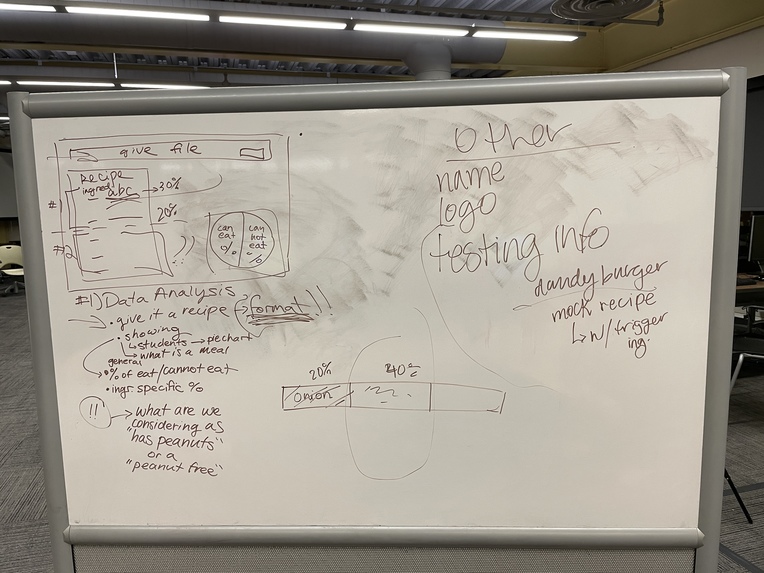 give file
Recipe
ingred
abc → 30%
20%
#1
#2
can eat %
can not eat %
#1) Data Analysis
• give it a recipe → format !!
• showing
↳ students → piechart
↳ what is a meal
general
→ % of eat/cannot eat
• ingr specific %
!! → what are we
considering as
"has peanuts"
or a
"peanut free"
other
name
logo
testing info
dandy burger
mock recipe
↳ w/ trigger
ing.
20%
40%
onion